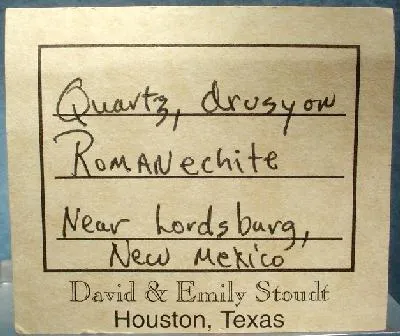 Quartz, drusy on
Romanechite
Near Lordsburg,
New Mexico
David & Emily Stoudt
Houston, Texas